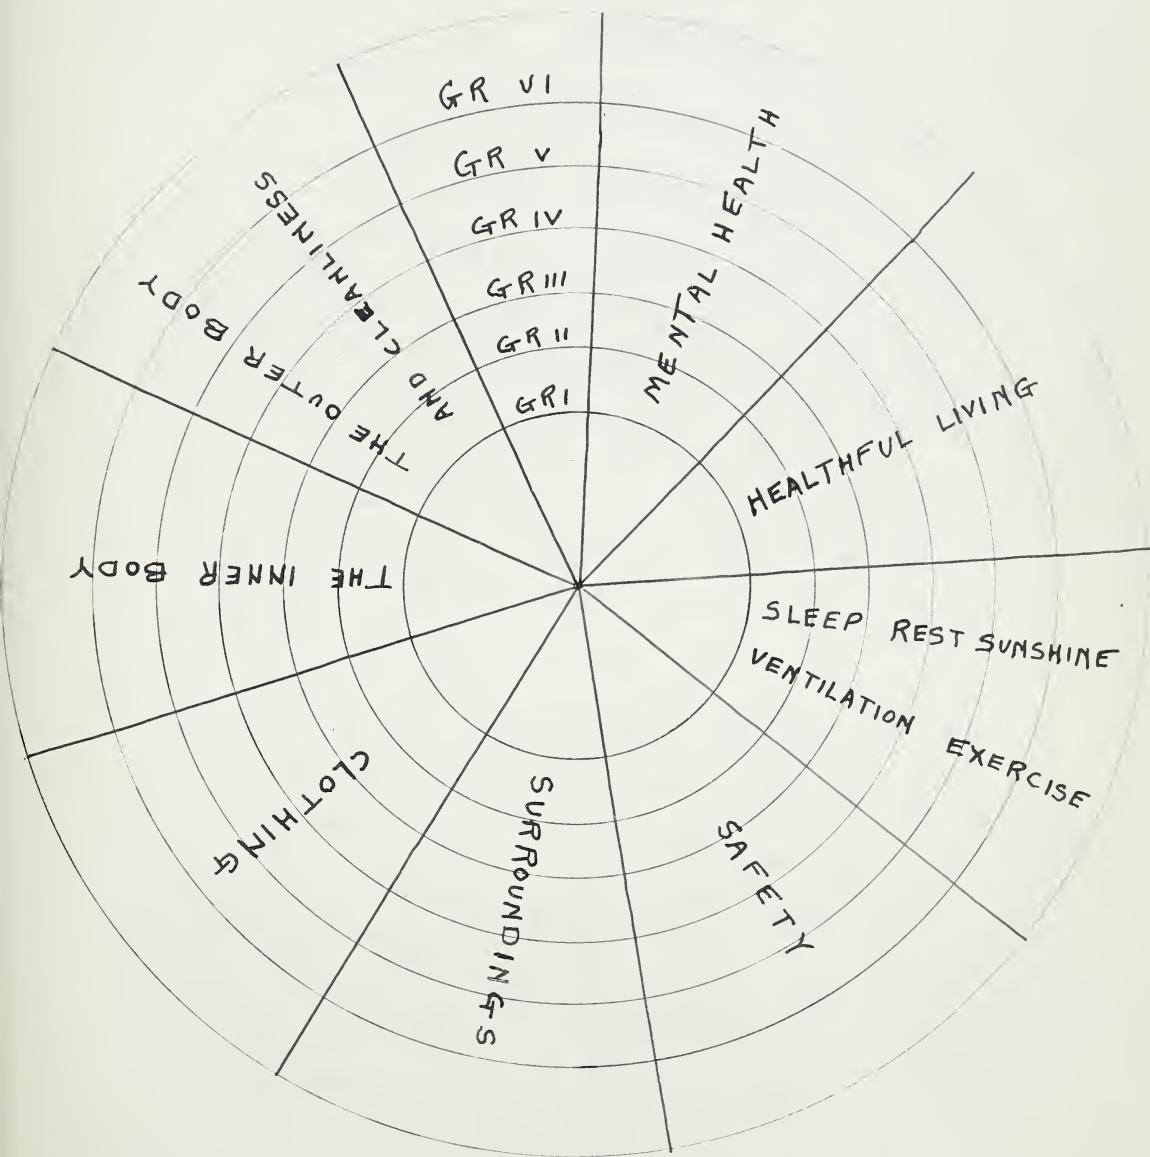 GR VI
GR V
GR IV
GR III
GR II
GR I
MENTAL HEALTH
HEALTHFUL LIVING
SLEEP REST SUNSHINE
VENTILATION EXERCISE
SAFETY
SURROUNDINGS
CLOTHING
THE INNER BODY
THE OUTER BODY
AND CLEANLINESS